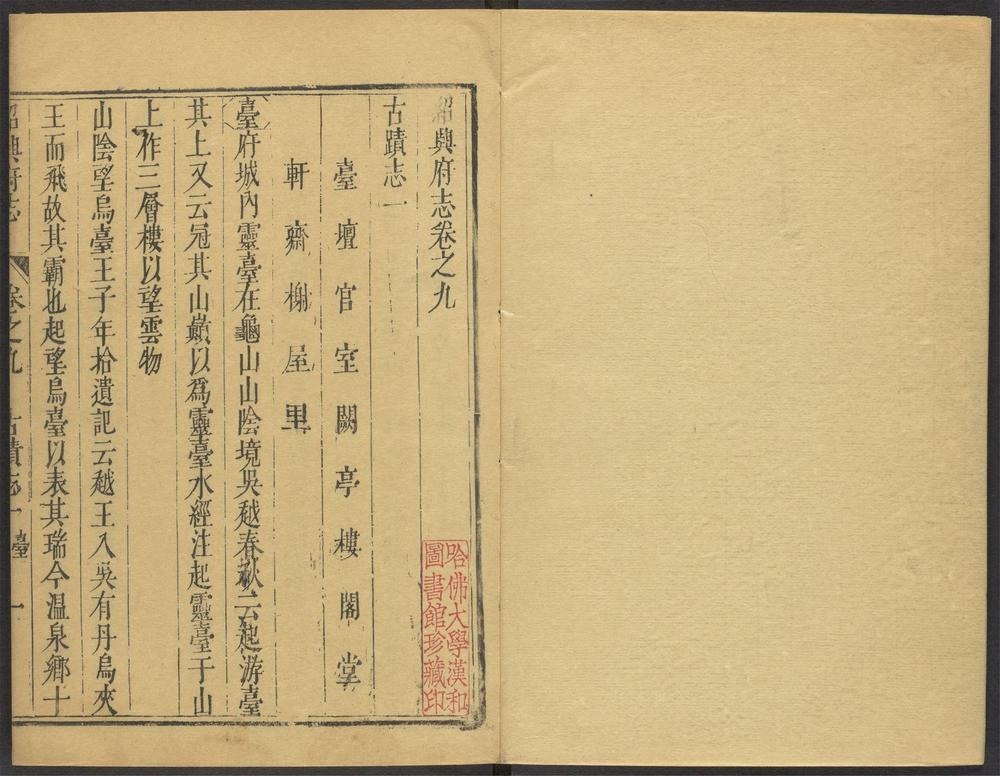 紹興府志卷之九
古蹟志一
臺壇官室闕亭樓閣堂
軒齋榭屋里
臺府城內靈臺在龜山山陰境吳越春秋云起游臺
其上又云冠其山巔以爲靈臺水經注起靈臺于山
上作三層樓以望雲物
山陰望烏臺王子年拾遺記云越王入吳有丹烏夾
王而飛故其霸也起望烏臺以表其瑞今温泉鄉十
紹興府志 卷之九 古蹟志一 臺 一
哈佛大學漢和
圖書館珍藏印